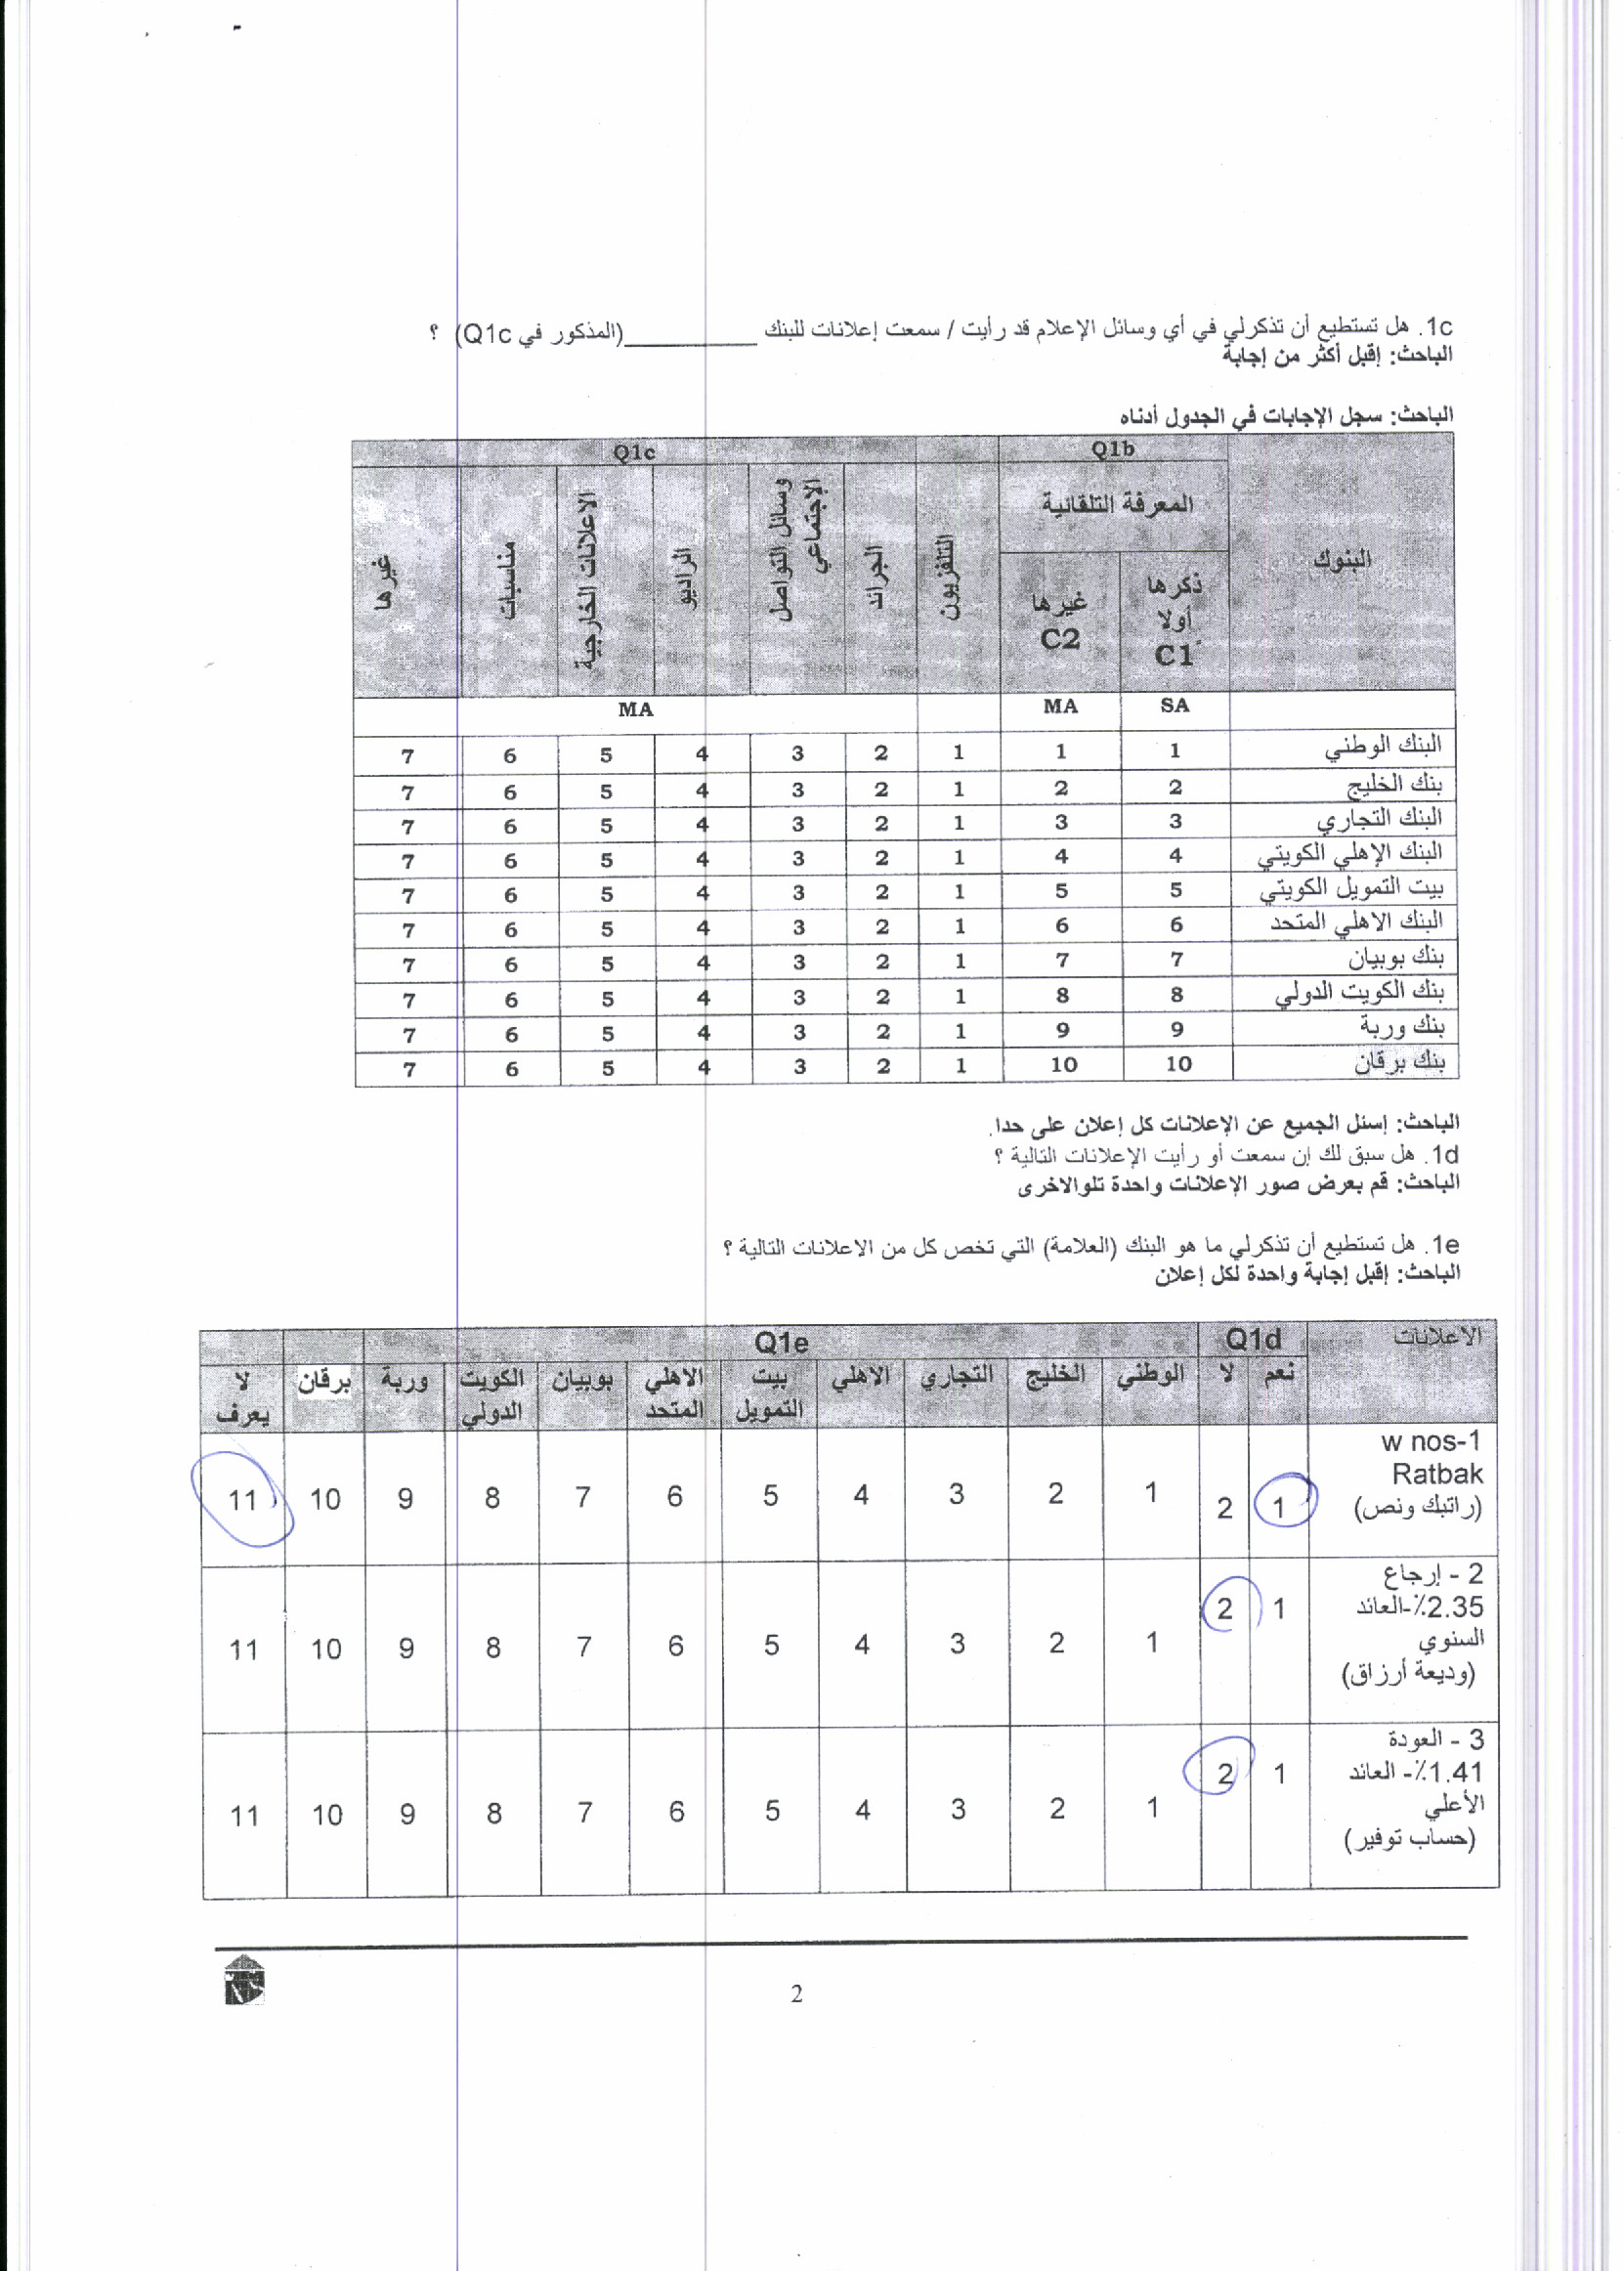 1c. هل تستطيع أن تذكرلي في أي وسائل الإعلام قد رأيت / سمعت إعلانات للبنك ____________(المذكور في Q1c) ؟
الباحث: إقبل أكثر من إجابة
الباحث: سجل الإجابات في الجدول أدناه
Q1b Q1c
البنوك المعرفة التلقائية التلفزيون الجرائد وسائل التواصل الإجتماعي الراديو الاعلانات الخارجية مناسبات غيرها
ذكرها أولا C1 غيرها C2
SA MA MA
البنك الوطني 1 1 1 2 3 4 5 6 7
بنك الخليج 2 2 1 2 3 4 5 6 7
البنك التجاري 3 3 1 2 3 4 5 6 7
البنك الإهلي الكويتي 4 4 1 2 3 4 5 6 7
بيت التمويل الكويتي 5 5 1 2 3 4 5 6 7
البنك الاهلي المتحد 6 6 1 2 3 4 5 6 7
بنك بوبيان 7 7 1 2 3 4 5 6 7
بنك الكويت الدولي 8 8 1 2 3 4 5 6 7
بنك وربة 9 9 1 2 3 4 5 6 7
بنك برقان 10 10 1 2 3 4 5 6 7
الباحث: إسئل الجميع عن الإعلانات كل إعلان على حدا.
1d. هل سبق لك إن سمعت أو رأيت الإعلانات التالية ؟
الباحث: قم بعرض صور الإعلانات واحدة تلوالاخرى
1e. هل تستطيع أن تذكرلي ما هو البنك (العلامة) التي تخص كل من الاعلانات التالية ؟
الباحث: إقبل إجابة واحدة لكل إعلان
الاعلانات Q1d Q1e
نعم لا الوطني الخليج التجاري الاهلي بيت التمويل الاهلي المتحد بوبيان الكويت الدولي وربة برقان لا يعرف
w nos-1
Ratbak
(راتبك ونص)
1 2 1 2 3 4 5 6 7 8 9 10 11
2 - إرجاع
2.35٪-العائد
السنوي
(وديعة أرزاق)
1 2 1 2 3 4 5 6 7 8 9 10 11
3 - العودة
1.41٪- العائد
الأعلي
(حساب توفير)
1 2 1 2 3 4 5 6 7 8 9 10 11
2